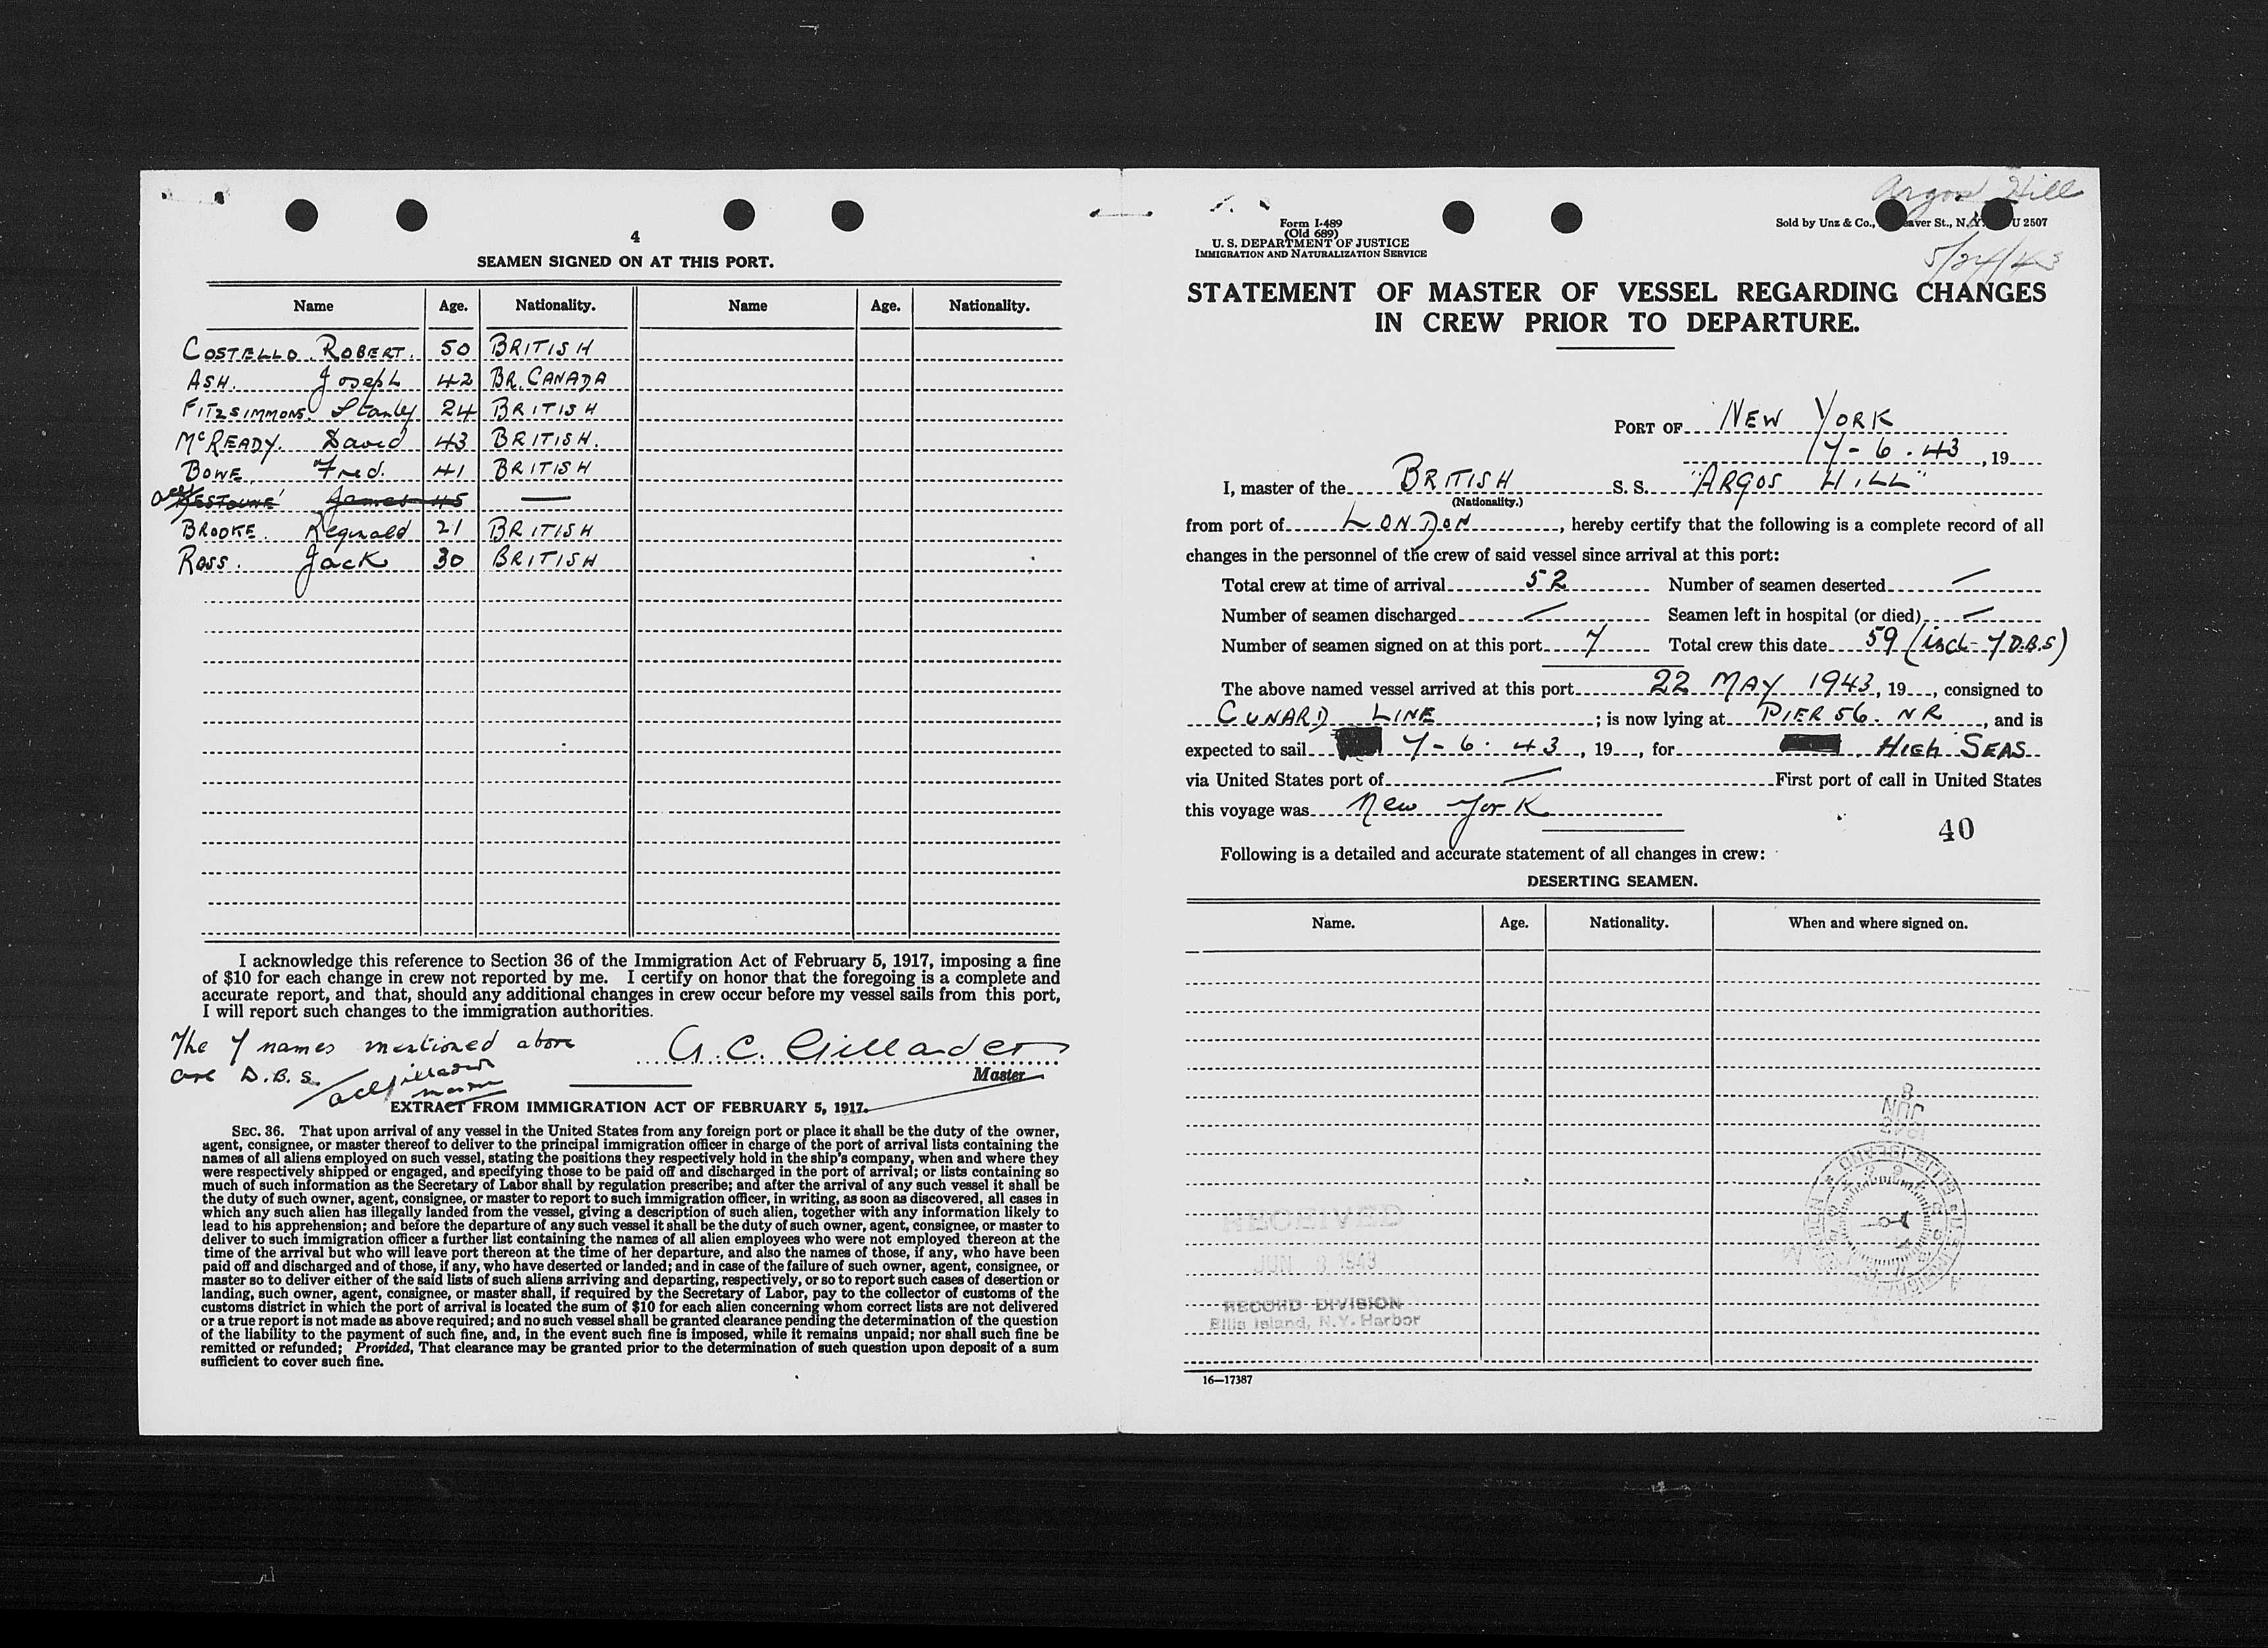 4
SEAMEN SIGNED ON AT THIS PORT.
Name Age. Nationality. Name Age. Nationality.
COSTELLO. ROBERT. 50 BRITISH
ASH. Joseph 42 BR. CANADA
FITZSIMMONS. Stanley 24 BRITISH
McREADY. David 43 BRITISH.
BOWE. Fred. 41 BRITISH
James 45 —
BROOKE. Reginald 21 BRITISH
ROSS. Jack 30 BRITISH
I acknowledge this reference to Section 36 of the Immigration Act of February 5, 1917, imposing a fine
of $10 for each change in crew not reported by me. I certify on honor that the foregoing is a complete and
accurate report, and that, should any additional changes in crew occur before my vessel sails from this port,
I will report such changes to the immigration authorities.
The 7 names mentioned above
are D.B.S.
Master
EXTRACT FROM IMMIGRATION ACT OF FEBRUARY 5, 1917.
SEC. 36. That upon arrival of any vessel in the United States from any foreign port or place it shall be the duty of the owner,
agent, consignee, or master thereof to deliver to the principal immigration officer in charge of the port of arrival lists containing the
names of all aliens employed on such vessel, stating the positions they respectively hold in the ship's company, when and where they
were respectively shipped or engaged, and specifying those to be paid off and discharged in the port of arrival; or lists containing so
much of such information as the Secretary of Labor shall by regulation prescribe; and after the arrival of any such vessel it shall be
the duty of such owner, agent, consignee, or master to report to such immigration officer, in writing, as soon as discovered, all cases in
which any such alien has illegally landed from the vessel, giving a description of such alien, together with any information likely to
lead to his apprehension; and before the departure of any such vessel it shall be the duty of such owner, agent, consignee, or master to
deliver to such immigration officer a further list containing the names of all alien employees who were not employed thereon at the
time of the arrival but who will leave port thereon at the time of her departure, and also the names of those, if any, who have been
paid off and discharged and of those, if any, who have deserted or landed; and in case of the failure of such owner, agent, consignee, or
master so to deliver either of the said lists of such aliens arriving and departing, respectively, or so to report such cases of desertion or
landing, such owner, agent, consignee, or master shall, if required by the Secretary of Labor, pay to the collector of customs of the
customs district in which the port of arrival is located the sum of $10 for each alien concerning whom correct lists are not delivered
or a true report is not made as above required; and no such vessel shall be granted clearance pending the determination of the question
of the liability to the payment of such fine, and, in the event such fine is imposed, while it remains unpaid; nor shall such fine be
remitted or refunded; Provided, That clearance may be granted prior to the determination of such question upon deposit of a sum
sufficient to cover such fine.
Argos Hill
Form I-489
(Old 689)
U. S. DEPARTMENT OF JUSTICE
IMMIGRATION AND NATURALIZATION SERVICE
Sold by Unz & Co., eaver St., N.Y. U 2507
5/24/43
STATEMENT OF MASTER OF VESSEL REGARDING CHANGES
IN CREW PRIOR TO DEPARTURE.
PORT OF NEW YORK
7-6.43, 19
I, master of the BRITISH S. S. "ARGOS HILL"
(Nationality.)
from port of LONDON, hereby certify that the following is a complete record of all
changes in the personnel of the crew of said vessel since arrival at this port:
Total crew at time of arrival 52 Number of seamen deserted —
Number of seamen discharged — Seamen left in hospital (or died) —
Number of seamen signed on at this port 7 Total crew this date 59 (incl- 7 D.B.S)
The above named vessel arrived at this port 22 MAY 1943, 19, consigned to
CUNARD LINE; is now lying at PIER 56. NR, and is
expected to sail 7-6.43, 19, for HIGH SEAS
via United States port of — First port of call in United States
this voyage was New York
40
Following is a detailed and accurate statement of all changes in crew:
DESERTING SEAMEN.
Name. Age. Nationality. When and where signed on.
RECEIVED
JUN 8 1943
RECORD DIVISION
Ellis Island, N.Y. Harbor
16—17387